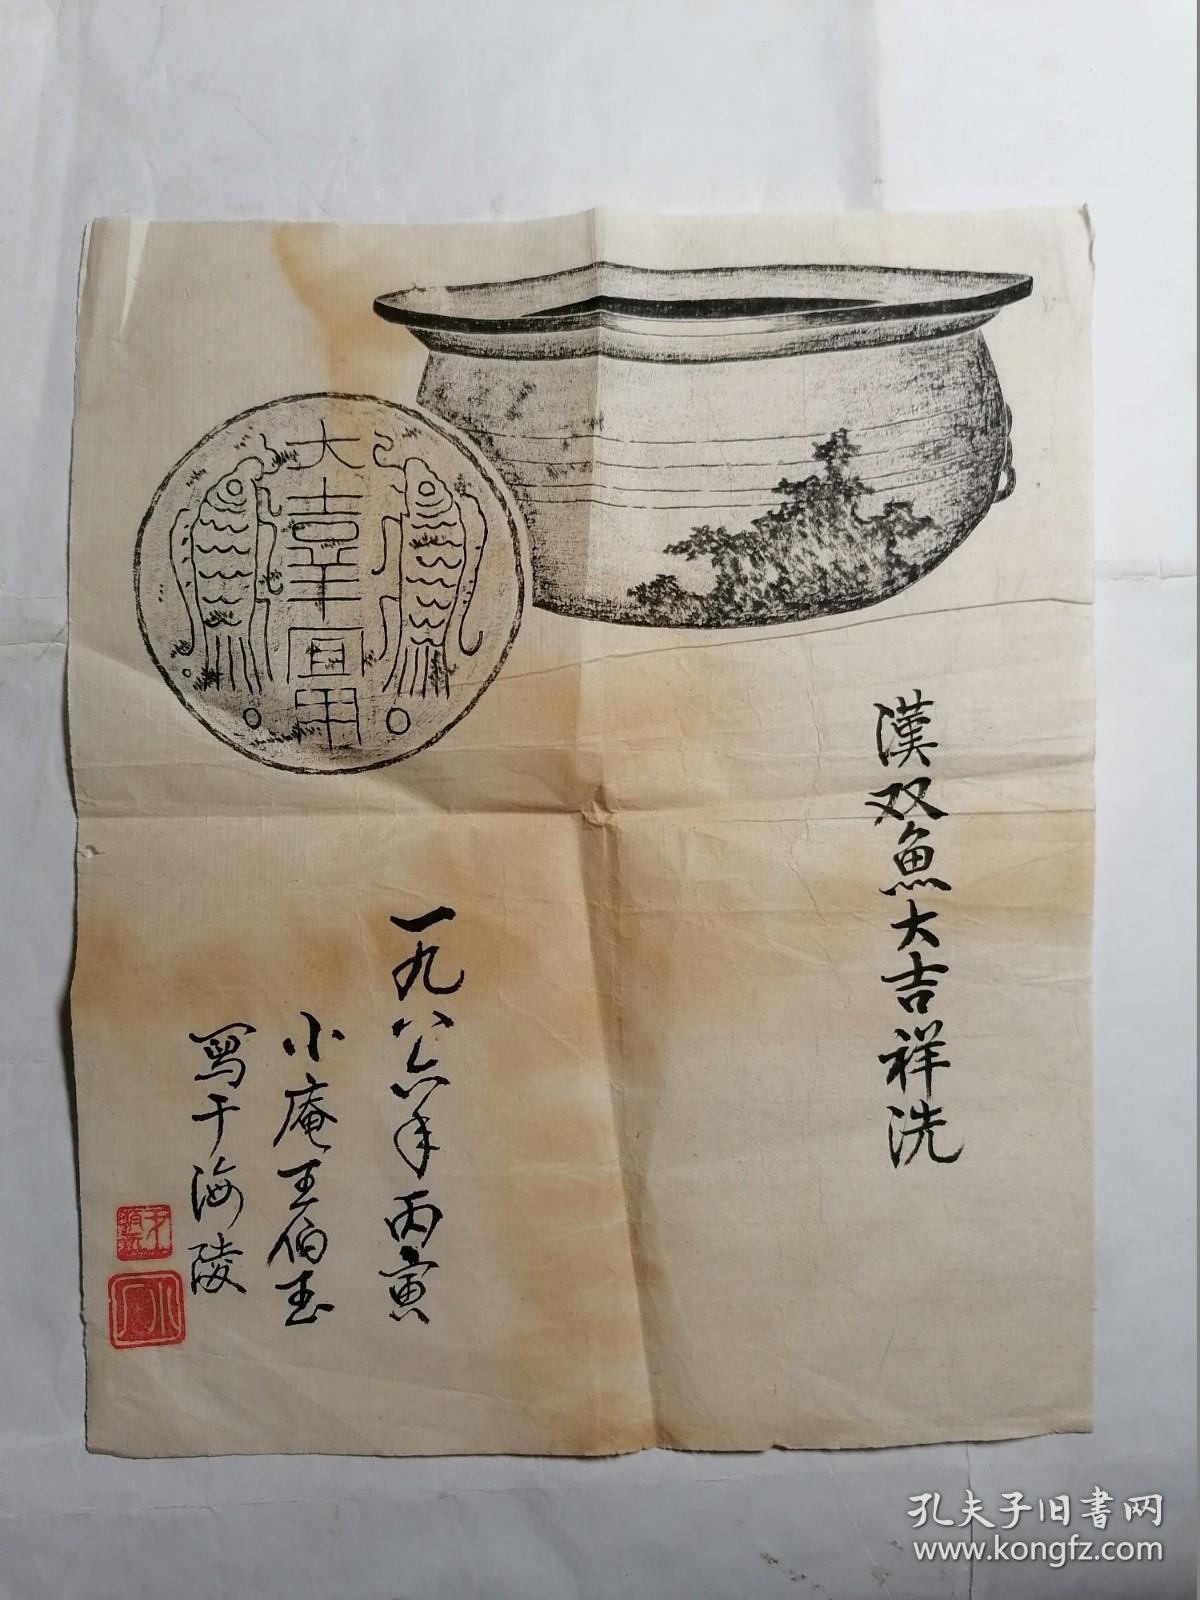 漢双魚大吉祥洗
大吉羊宜用
一九八六年丙寅
小庵王伯玉
寫于海陵
孔夫子旧書网
www.kongfz.com